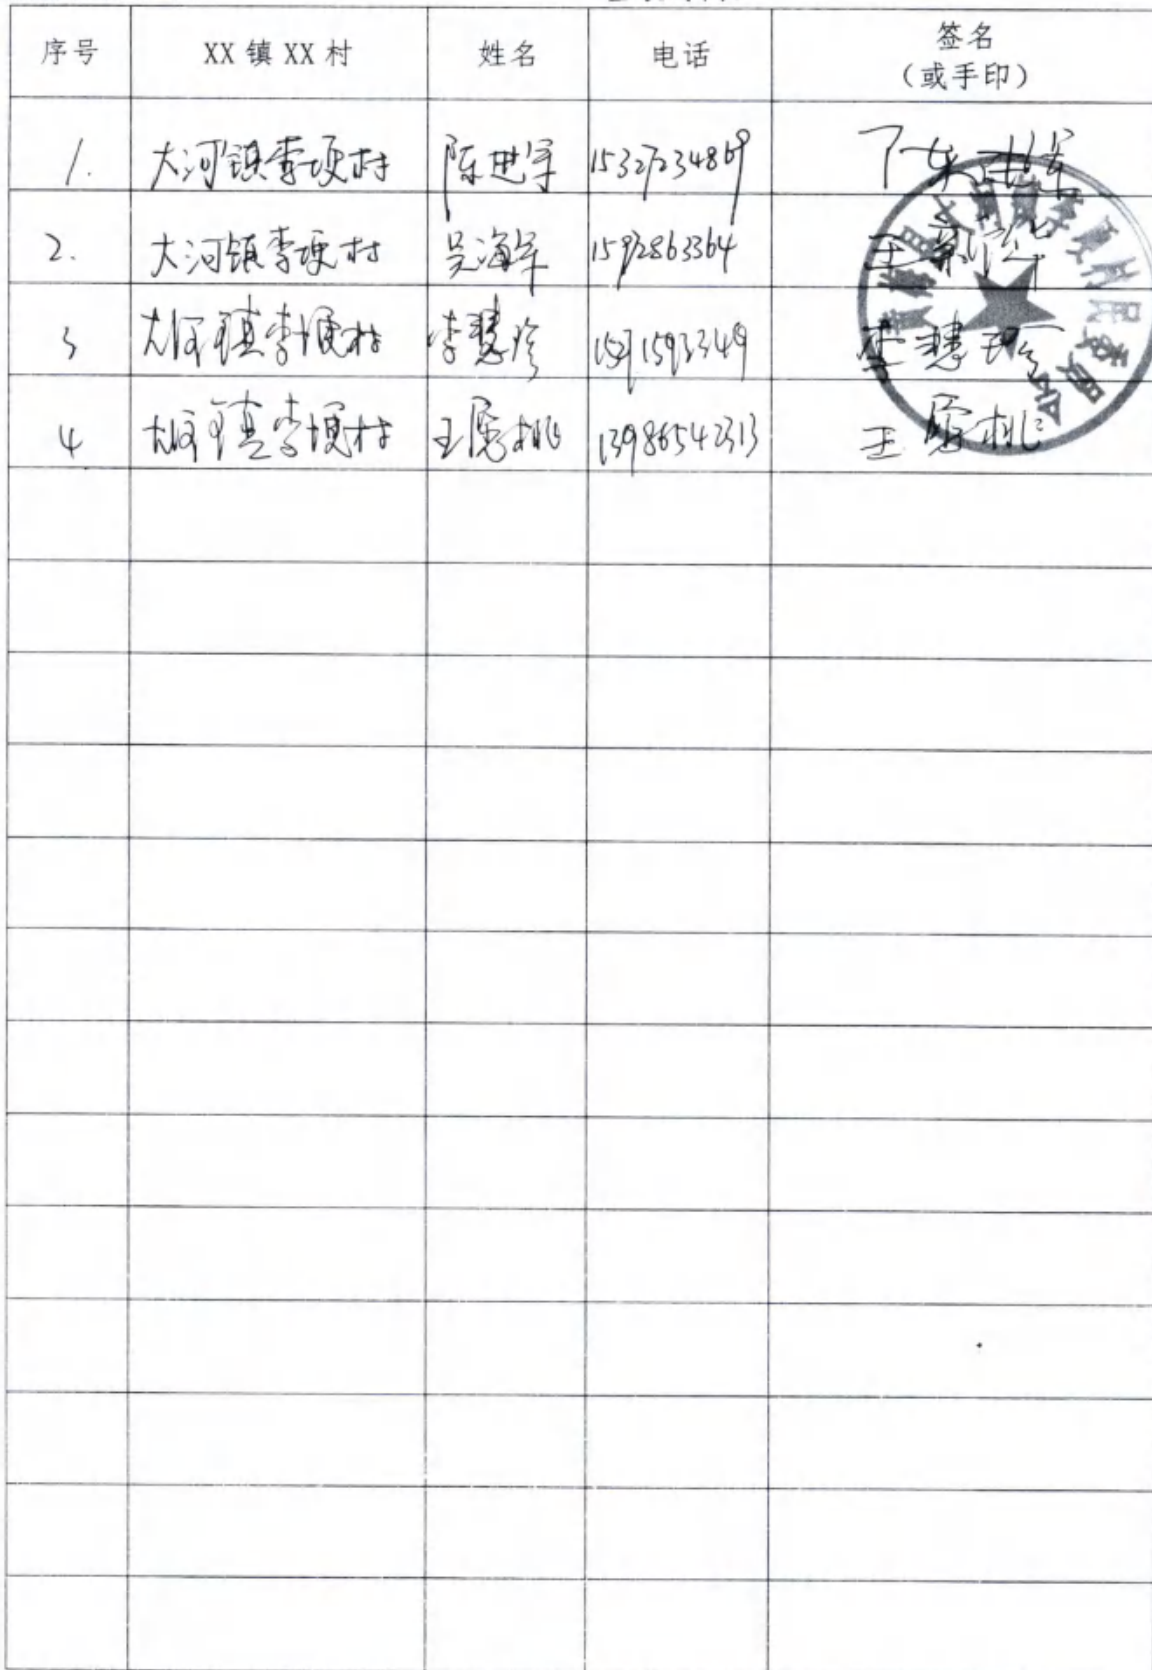 序号 XX镇XX村 姓名 电话 签名
（或手印）
1. 大河镇李埂村 陈进军 15327234869 陈进军
2. 大河镇李埂村 吴海军 15972863364
3 大河镇李埂村 李慧珍 15971593349 李慧珍
4 大河镇李埂村 13986542313